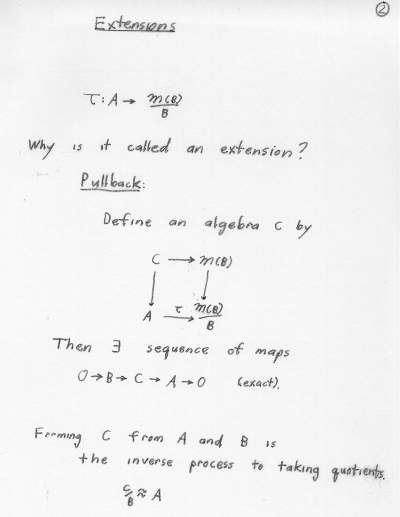 ②
Extensions
τ: A → M(B)/B
Why is it called an extension?
Pullback:
Define an algebra C by
C → M(B)
↓ ↓
A τ→ M(B)/B
Then ∃ sequence of maps
0→B→C→A→0 (exact).
Forming C from A and B is
the inverse process to taking quotients.
C/B ≈ A